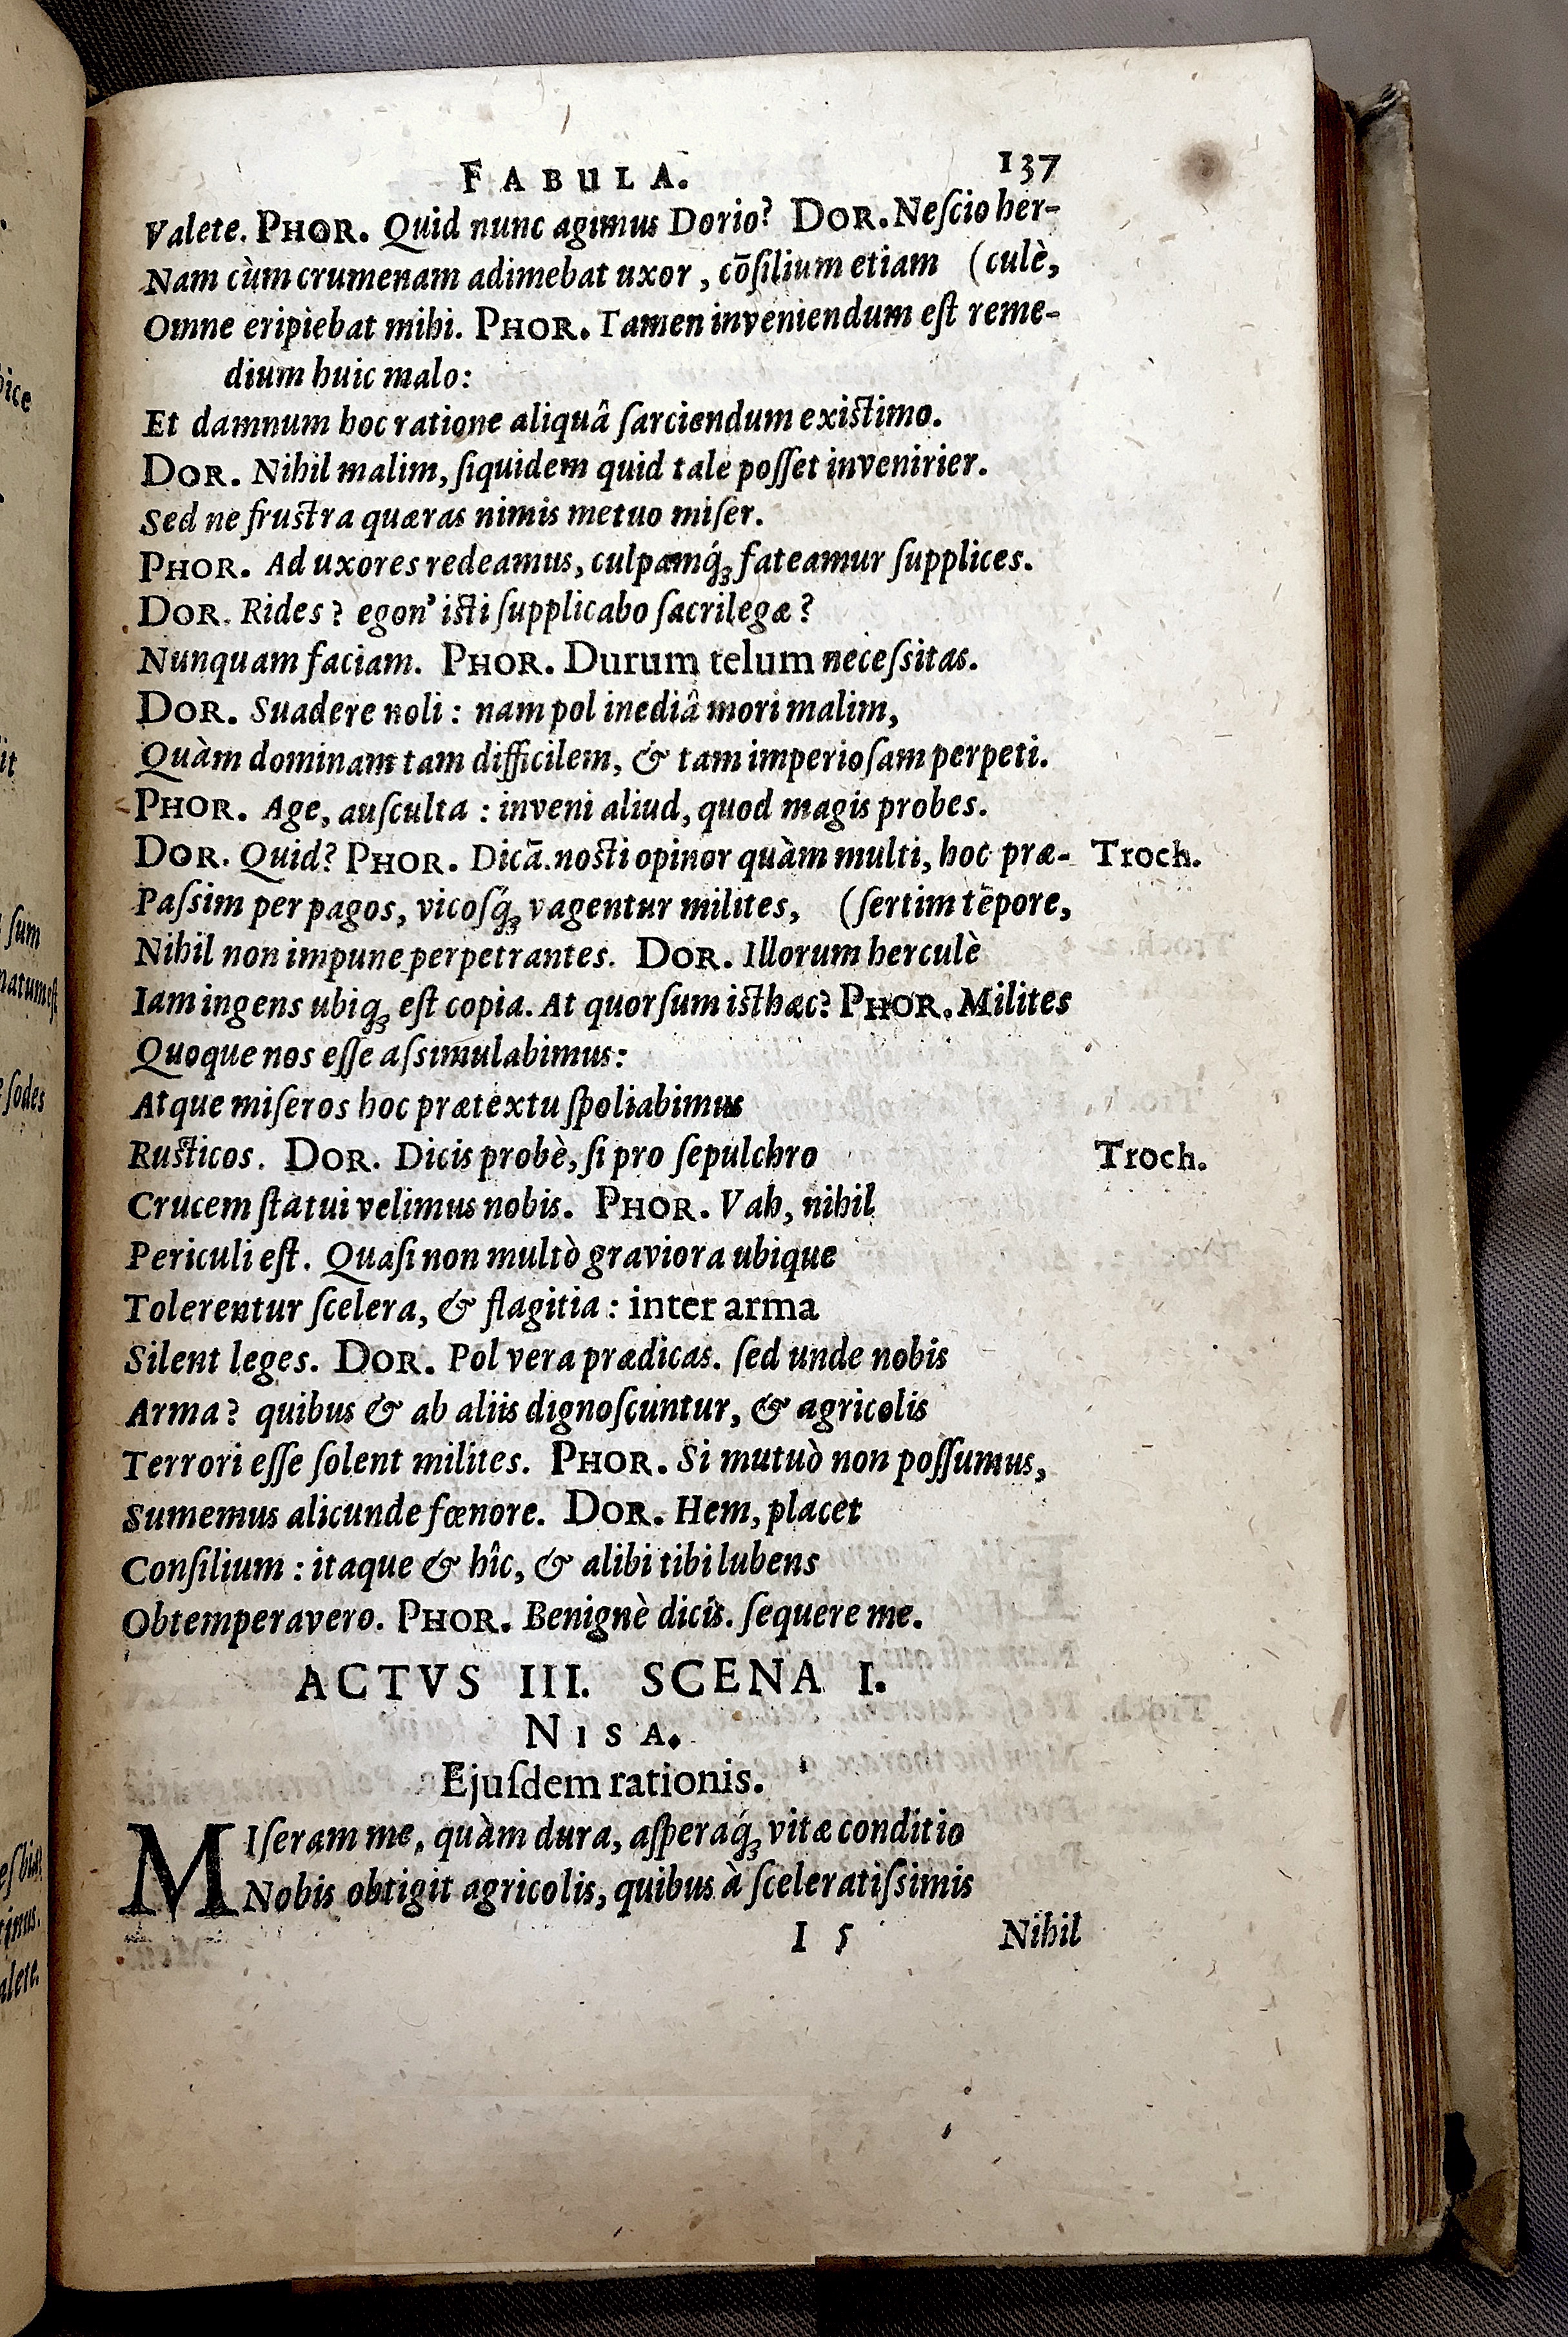 FABULA. 137
Valete. PHOR. Quid nunc agimus Dorio? DOR. Neſcio her-
Nam cùm crumenam adimebat uxor, cõſilium etiam (culè,
Omne eripiebat mihi. PHOR. Tamen inveniendum eſt reme-
dium huic malo:
Et damnum hoc ratione aliquâ ſarciendum exiſtimo.
DOR. Nihil malim, ſiquidem quid tale poſſet invenirier.
Sed ne fruſtra quæras nimis metuo miſer.
PHOR. Ad uxores redeamus, culpamq́ꝫ fateamur ſupplices.
DOR. Rides? egon' iſti ſupplicabo ſacrilegæ?
Nunquam faciam. PHOR. Durum telum neceſsitas.
DOR. Suadere noli: nam pol inediâ mori malim,
Quàm dominam tam difficilem, & tam imperioſam perpeti.
PHOR. Age, auſculta: inveni aliud, quod magis probes.
DOR. Quid? PHOR. Dicã. noſti opinor quàm multi, hoc præ- Troch.
Paſsim per pagos, vicoſq́ꝫ vagentur milites, (ſertim tẽpore,
Nihil non impune perpetrantes. DOR. Illorum herculè
Iam ingens ubiqꝫ eſt copia. At quorſum iſthæc? PHOR. Milites
Quoque nos eſſe aſsimulabimus:
Atque miſeros hoc prætextu ſpoliabimus
Ruſticos. DOR. Dicis probè, ſi pro ſepulchro Troch.
Crucem ſtatui velimus nobis. PHOR. Vah, nihil
Periculi eſt. Quaſi non multò graviora ubique
Tolerentur ſcelera, & flagitia: inter arma
Silent leges. DOR. Pol vera prædicas. ſed unde nobis
Arma? quibus & ab aliis dignoſcuntur, & agricolis
Terrori eſſe ſolent milites. PHOR. Si mutuò non poſſumus,
Sumemus alicunde fœnore. DOR. Hem, placet
Conſilium: itaque & hîc, & alibi tibi lubens
Obtemperavero. PHOR. Benignè dicis. ſequere me.
ACTVS III. SCENA I.
NISA.
Ejuſdem rationis.
MIſeram me, quàm dura, aſperaq́ꝫ vitæ conditio
Nobis obtigit agricolis, quibus à ſceleratiſsimis
I 5 Nihil